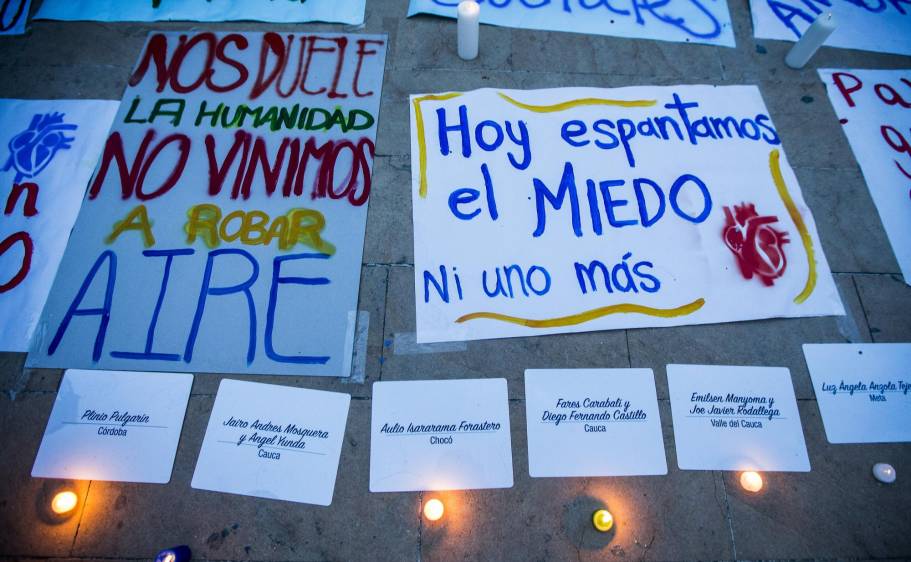 NOS DUELE
LA HUMANIDAD
NO VINIMOS
A ROBAR
AIRE
Hoy espantamos
el MIEDO
Ni uno más
Plinio Pulgarin
Córdoba
Jairo Andres Mosquera
y Angel Yunda
Cauca
Aulio Isararama Forastero
Chocó
Fares Carabali y
Diego Fernando Castillo
Cauca
Emilsen Manyoma y
Joe Javier Rodallega
Valle del Cauca
Luz Angela Anzola Teje
Meta